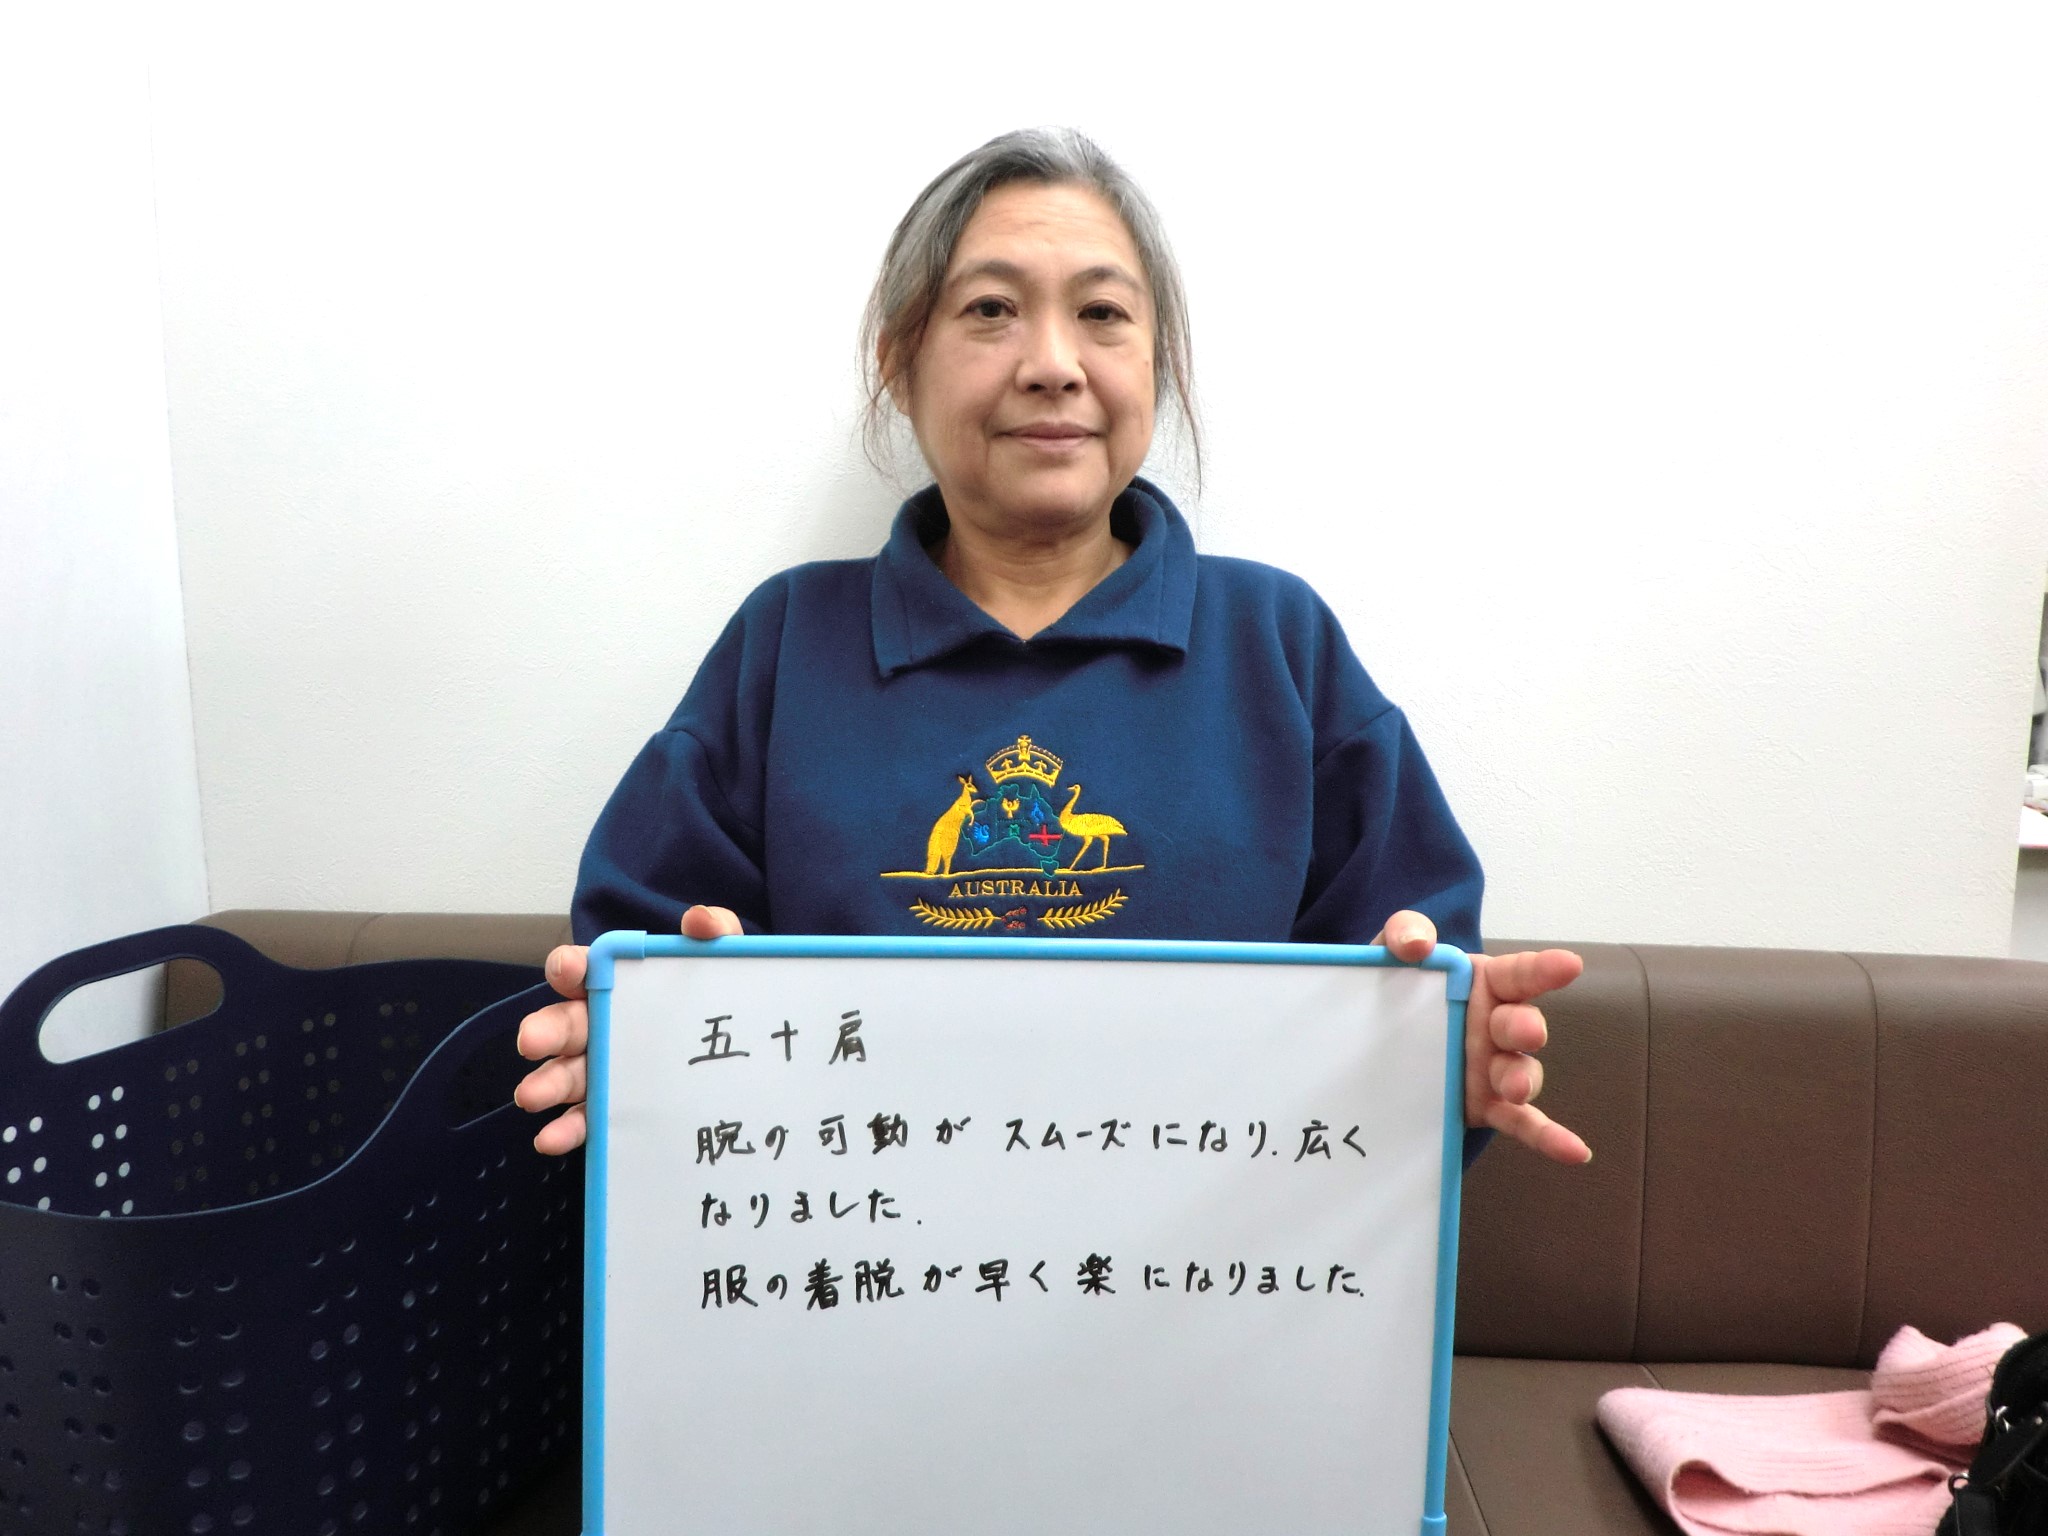 AUSTRALIA
五十肩
腕の可動がスムーズになり.広く
なりました.
服の着脱が早く楽になりました.